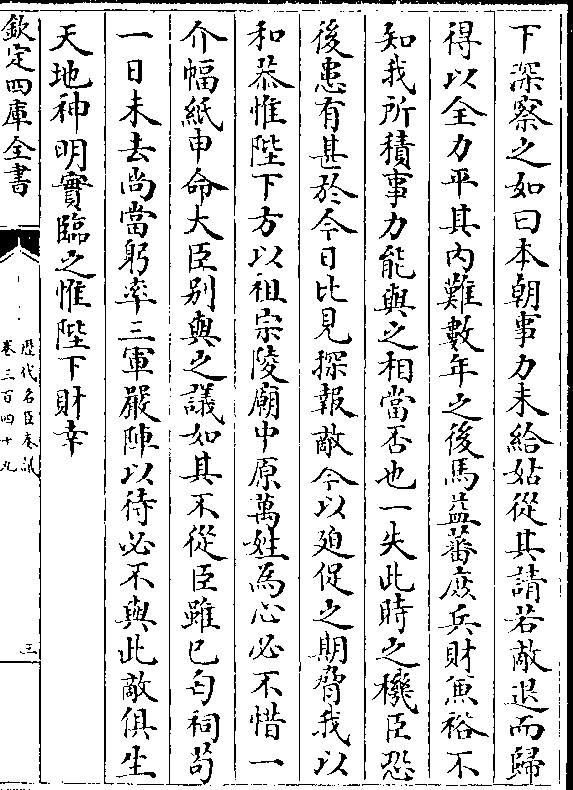 下深察之如曰本朝事力未給姑從其請若敵退而歸
得以全力平其内難數年之後馬益蕃庶兵財兼裕不
知我所積事力能與之相當否也一失此時之機臣恐
後患有甚於今日比見探報敵今以廹促之期脅我以
和恭惟陛下方以祖宗陵廟中原萬姓為心必不惜一
介幅紙申命大臣别與之議如其不從臣雖已匄祠茍
一日未去尚當躬率三軍嚴陣以待必不與此敵俱生
天地神明實臨之惟陛下財幸
欽定四庫全書
歴代名臣奏議
卷三百四十九
三